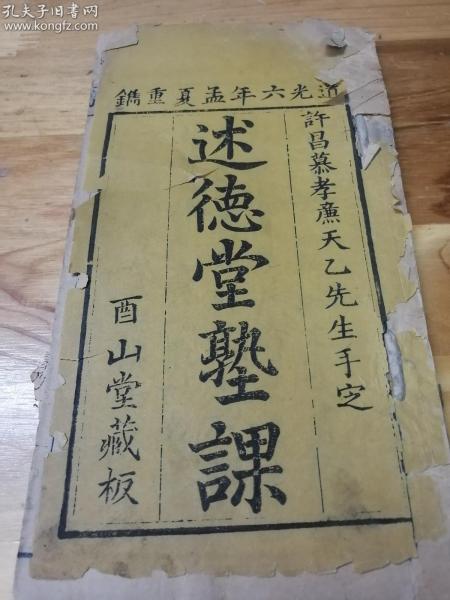 孔夫子旧书网
www.kongfz.com
道光六年孟夏重鐫
許昌慕孝廉天乙先生手定
述德堂塾課
酉山堂藏板